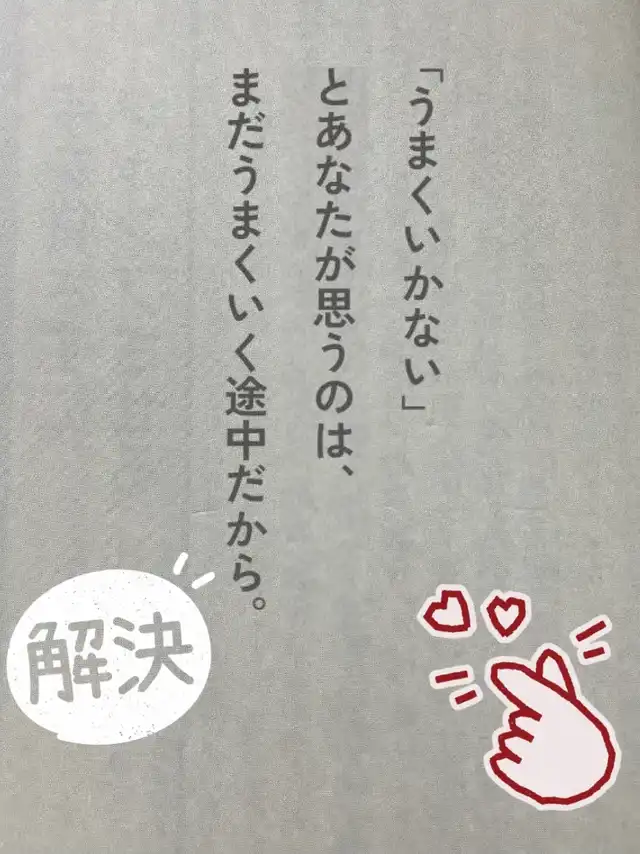 「うまくいかない」
とあなたが思うのは、
まだうまくいく途中だから。
解決